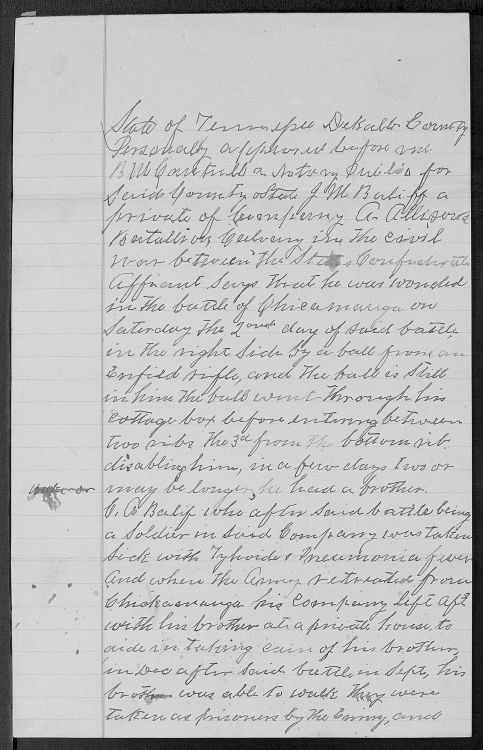 State of Tennessee Dekalb County
Personally appeared before me
B M Cantrell a Notary Public for
said County & State J M Baliff a
private of Company A Allisons
Batallion Calvary in the civil
war between the States Confederate
Affiant says that he was wonded
in the battle of Chicamauga on
Saturday the 2ond day of said battle
in the right side by a ball from an
Enfied rifle, and the ball is still
in him the ball went through his
cottage box before entering between
two ribs the 3d from the bottom rib.
disabling him, in a few days two or
may be longer, he had a brother
C. A Balif who after said battle being
a soldier in said Company was taken
sick with Tyhoide & Pneumonia fever
And when the Army retreated from
Chickamauga his Company left Aft
with his brother at a private house to
aide in taking cair of his brother,
in Dec after said battle in Sept, his
brother was able to walk they were
taken as prisoners by the Enmy, and